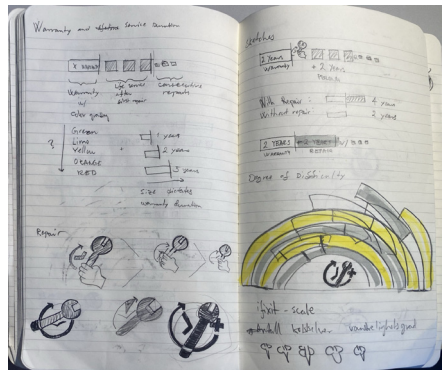 Warranty and lifetime Service Duration
X YEARS
Warranty
w/
color grading
Life service
after
first repair
consecutive
repairs
?
Green
Lime
Yellow
ORANGE
RED
1 years
2 years
5 years
size dictates
warranty duration
Repair
Sketches
2 Years
Warranty
+ 2 Years
With Repair :
4 years
Without repair :
2 years
2 YEARS
+ 2 YEARS
WARRANTY
REPAIR
Degree of Difficulty
ifixit - scale